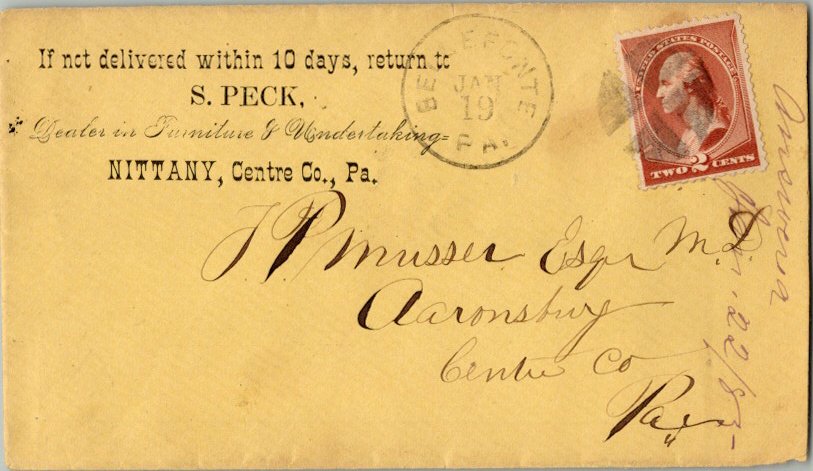 If not delivered within 10 days, return to
S. PECK,
Dealer in Furniture & Undertaking=
NITTANY, Centre Co., Pa.
BELLEFONTE
JAN
19
PA.
UNITED STATES POSTAGE
TWO 2 CENTS
J P Musser Esqr M.D.
Aaronsburg
Centre Co
Pa
Answered
Jan. 22/85